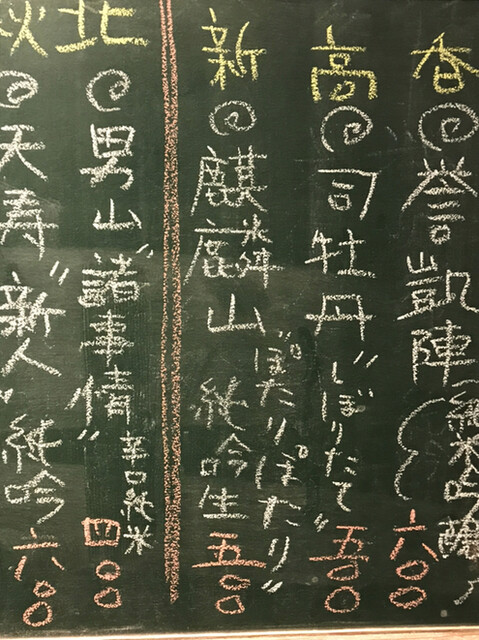 香 誉凱陣(純米吟醸) 六〇〇
高 司牡丹 "しぼりたて" 五〇〇
新 麒麟山 "ぽたりぽたり" 純吟生 五〇〇
北 男山 "諸事情" 辛口純米 四〇〇
秋 天寿 "新人" 純吟 六〇〇